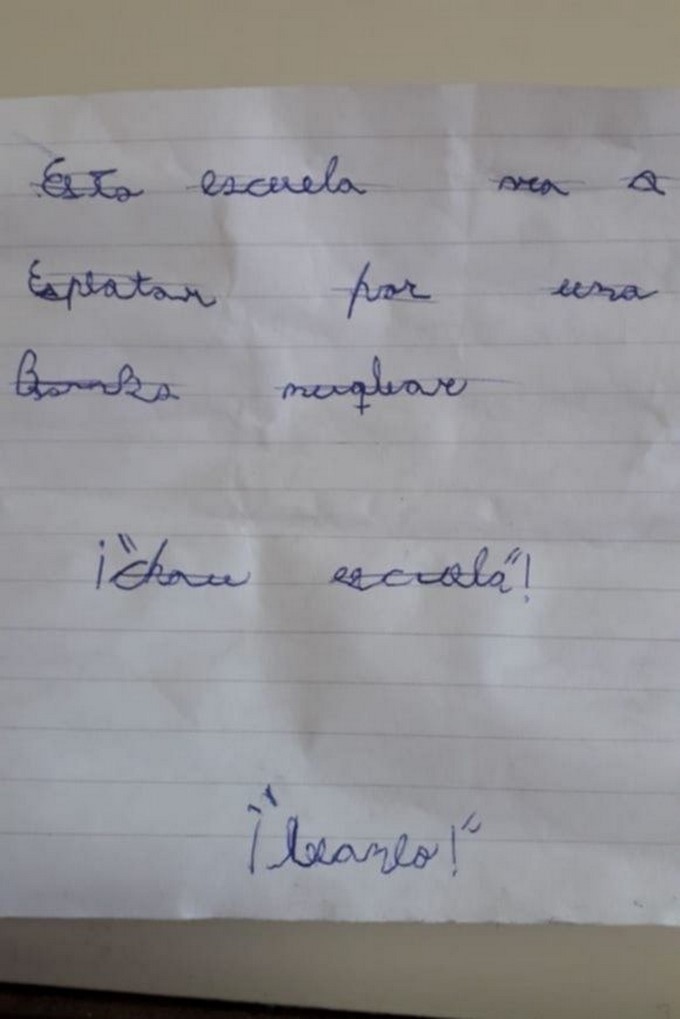 Esta escuela va a
Esplotar por una
Bomba nuqlear
¡"chau escuela"!
¡"leanlo!"